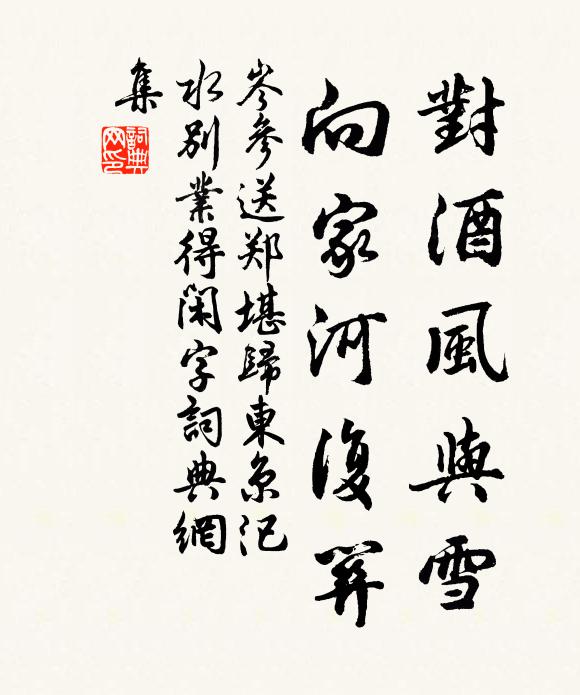 對酒風與雪
向家河復關
岑參送郑堪歸東京汜
水別業得閑字詞典網
集
詞典网印